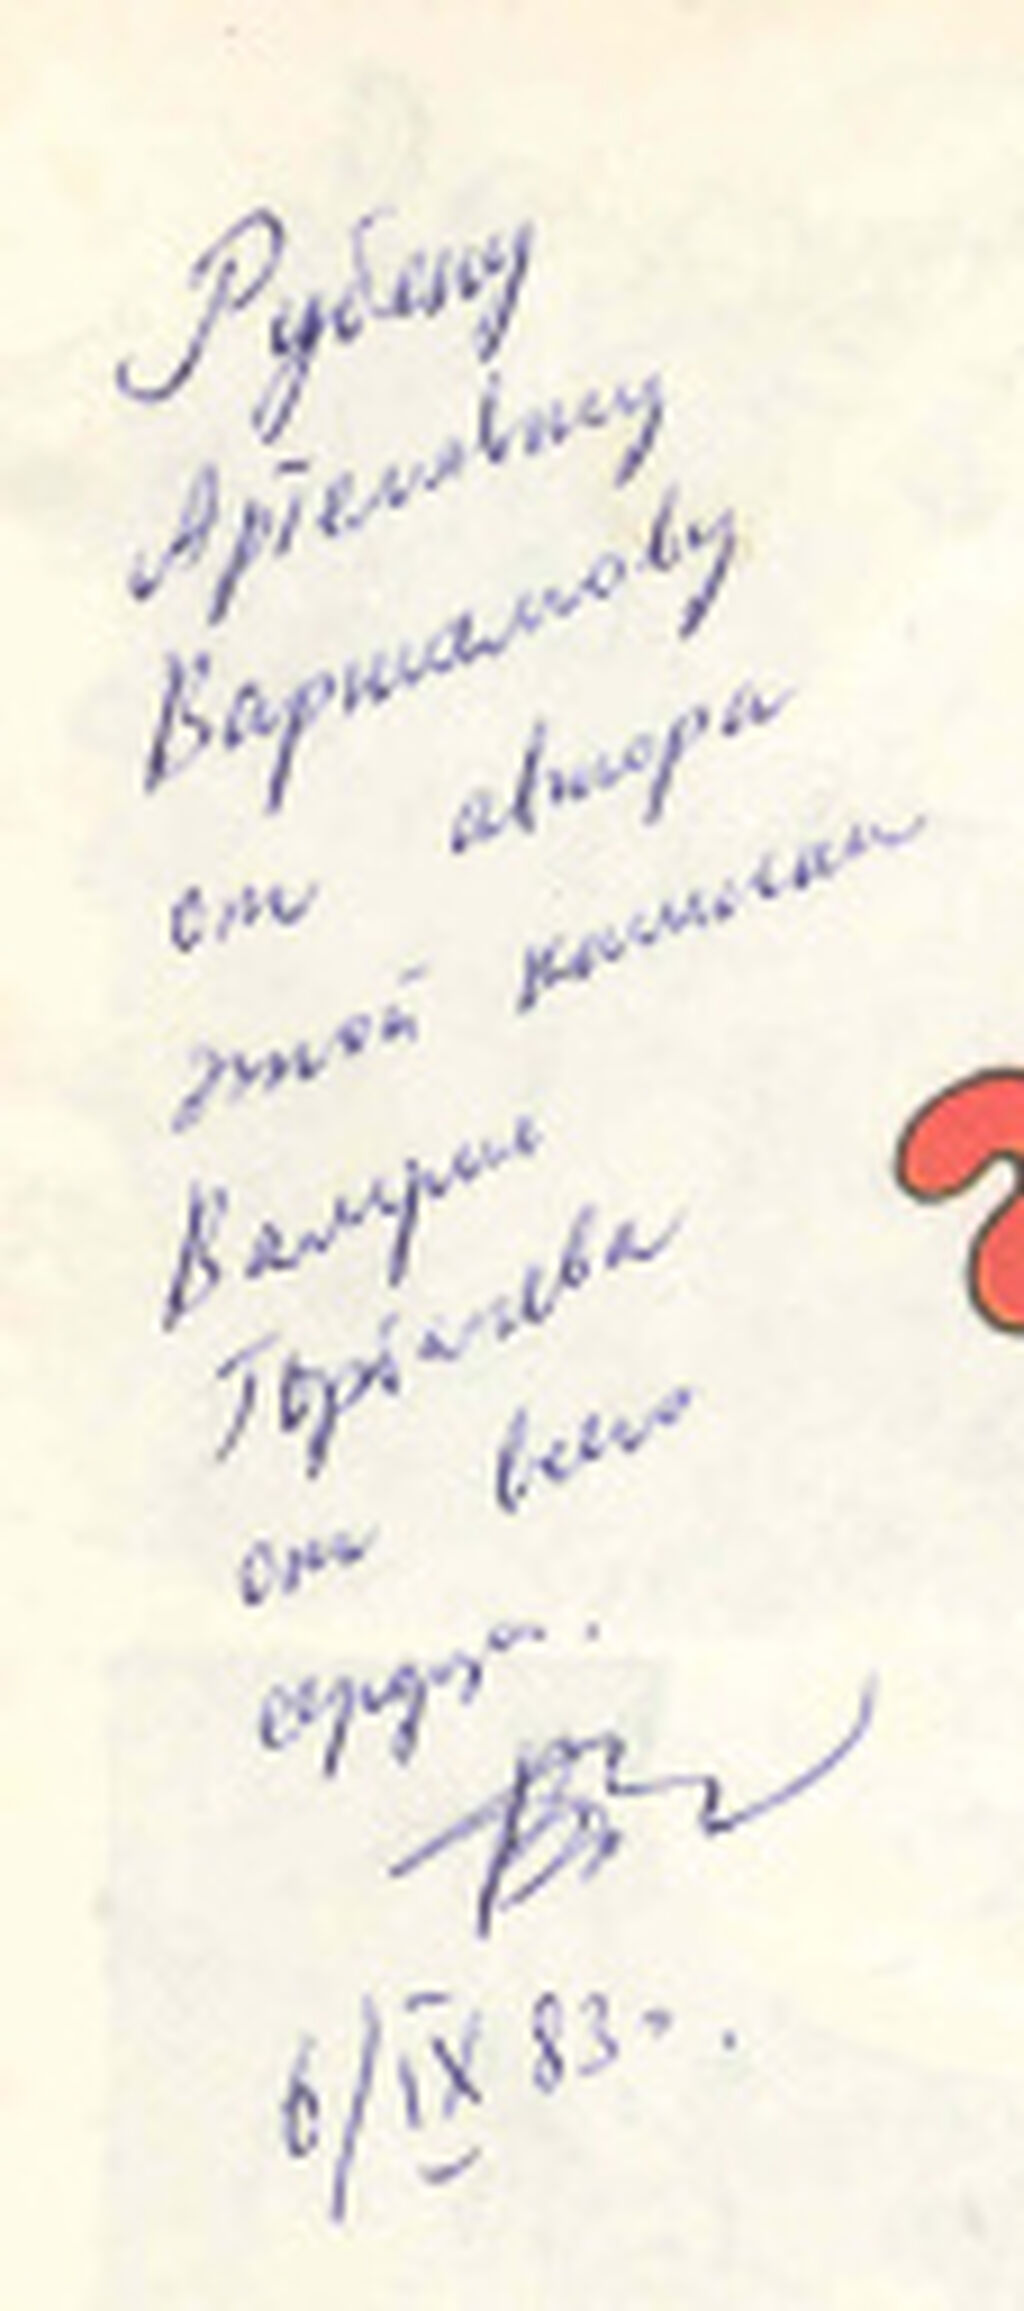 Рубену
Артемовичу
Варшамову
от автора
этой книжки
Валерия
Горбачева
от всего
сердца.
6/IX 83г.